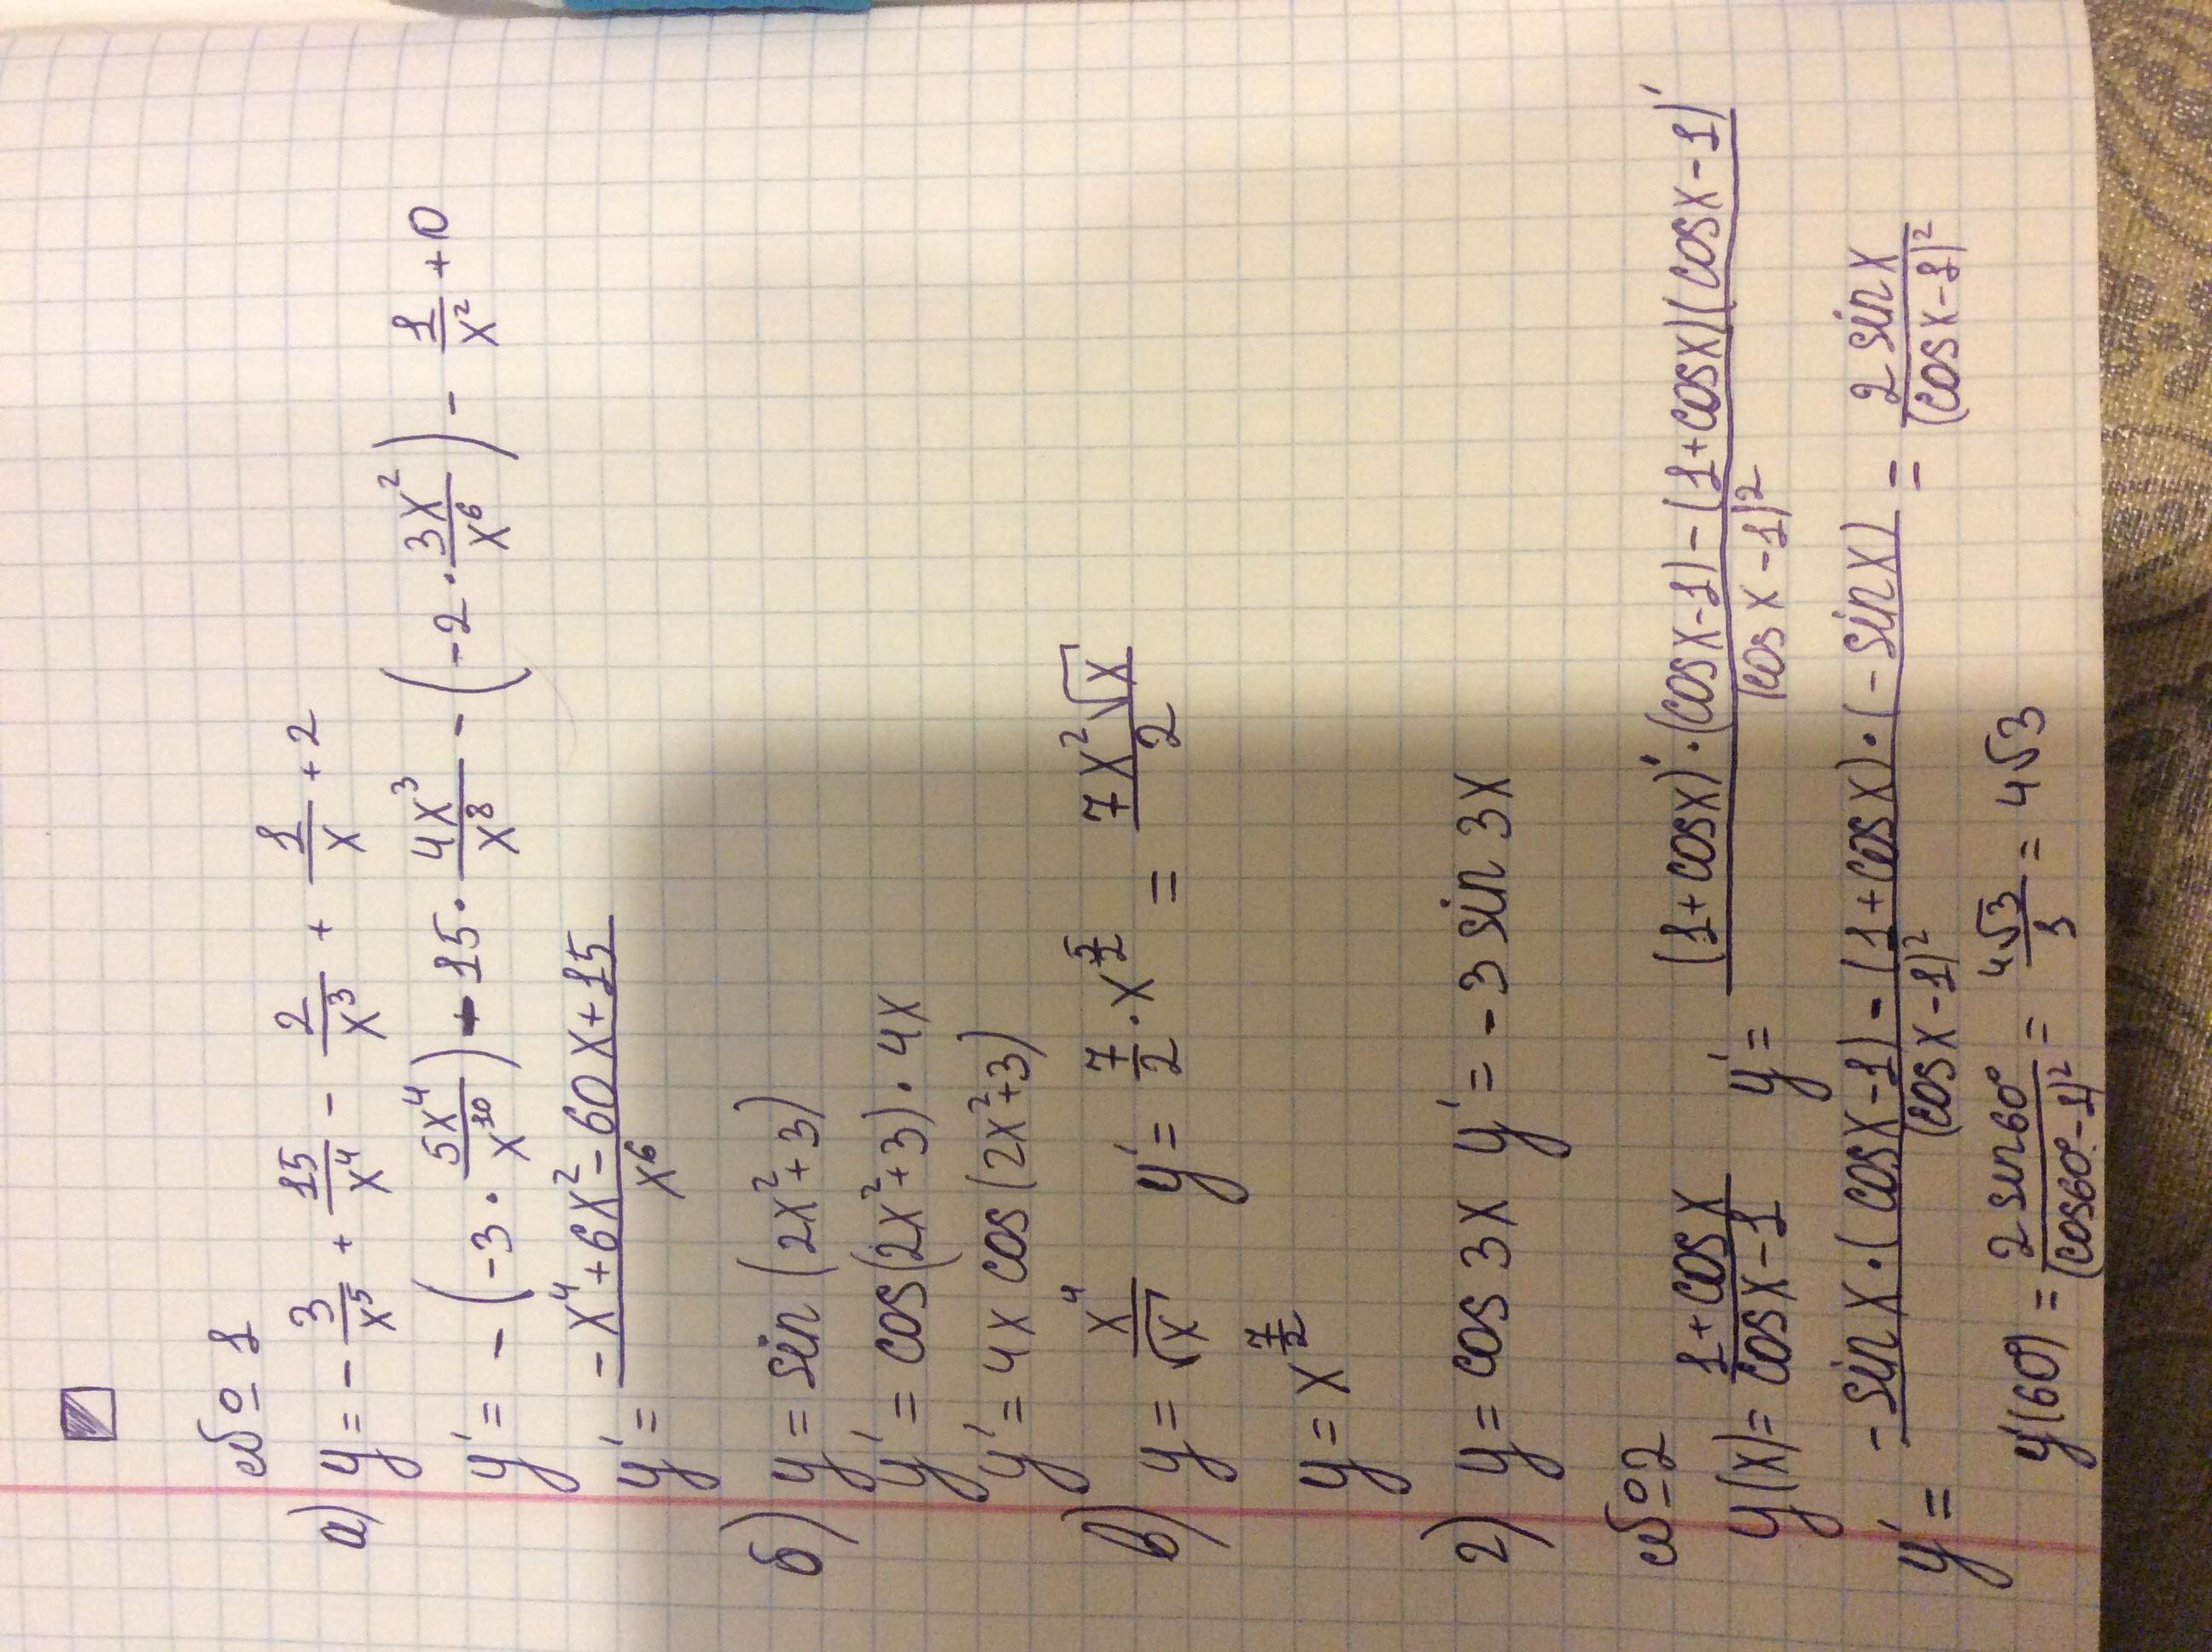 № 1
а) y = - 3/x⁵ + 15/x⁴ - 2/x³ + 1/x + 2
y' = - (-3 · 5x⁴/x¹⁰) - 15 · 4x³/x⁸ - (-2 · 3x²/x⁶) - 1/x² + 0
y' = (-x⁴ + 6x² - 60x + 15)/x⁶
б) y = sin (2x² + 3)
y' = cos(2x² + 3) · 4x
y' = 4x cos (2x² + 3)
в) y = x⁴/√x y' = 7/2 · x^(5/2) = 7x²√x/2
y = x^(7/2)
г) y = cos 3x y' = - 3 sin 3x
№ 2
y(x) = (1 + cos x)/(cos x - 1) y' = ((1 + cos x)' · (cos x - 1) - (1 + cos x)(cos x - 1)')/(cos x - 1)²
y' = (- sin x · (cos x - 1) - (1 + cos x) · (- sin x))/(cos x - 1)² = 2 sin x/(cos x - 1)²
y'(60) = 2 sin 60°/(cos 60° - 1)² = 4√3/3 = 4√3